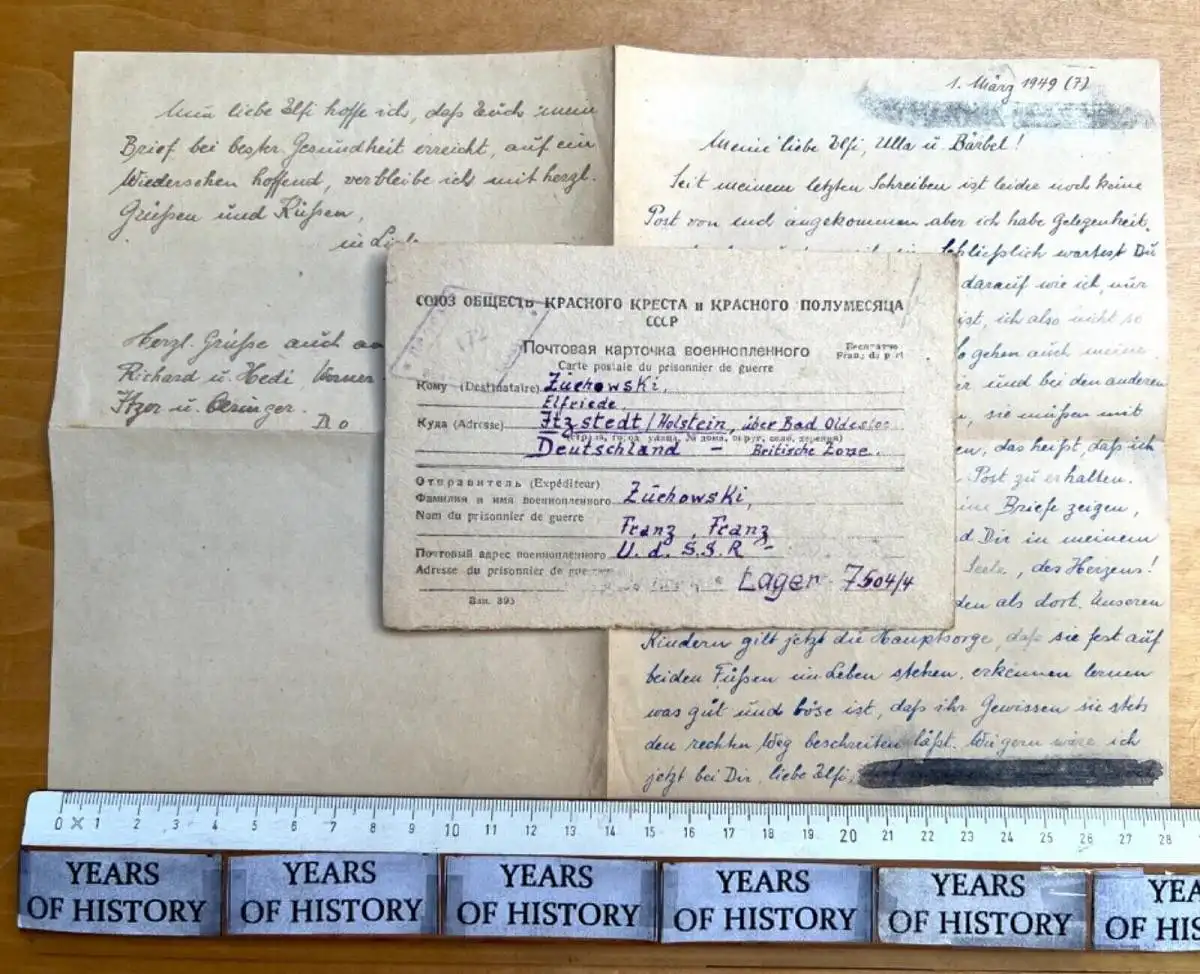 Nun liebe Elfi hoffe ich, daß Euch mein
Brief bei bester Gesundheit erreicht, auf ein
Wiedersehen hoffend, verbleibe ich mit herzl.
Grüßen und Küssen,
in
Herzl. Grüße auch
Richard u. Hedi, Werner
Itzor u. Oeringer.
1. März 1949 (7)
Meine liebe Elfi, Ulla u. Bärbel!
Seit meinem letzten Schreiben ist leider noch keine
Post von und angekommen aber ich habe Gelegenheit,
schließlich wartest Du
darauf wie ich, nur
ist, ich also nicht so
gehen auch meine
und bei den anderen
sie müssen mit
das heißt, daß ich
Post zu erhalten.
Briefe zeigen,
d Dir in meinem
Seele, des Herzens!
den als dort. Unseren
Kindern gilt jetzt die Hauptsorge, daß sie fest auf
beiden Füßen im Leben stehen, erkennen lernen
was gut und böse ist, daß ihr Gewissen sie stets
den rechten Weg beschreiten läßt. Wie gern wäre ich
jetzt bei Dir, liebe Elfi,
СОЮЗ ОБЩЕСТЬ КРАСНОГО КРЕСТА и КРАСНОГО ПОЛУМЕСЯЦА
СССР
172
Почтовая карточка военнопленного
Бесплатно
Carte postale du prisonnier de guerre
Кому (Destinataire) Züchowski,
Elfriede
Куда (Adresse) Itzstedt/Holstein, über Bad Oldesloe
(страна, город, улица, № дома, округ, село, деревня)
Deutschland - Britische Zone.
Отправитель (Expéditeur)
Фамилия и имя военнопленного Züchowski,
Nom du prisonnier de guerre
Franz, Franz
Почтовый адрес военнопленного U.d.S.S.R -
Adresse du prisonnier de guerre
Lager 7504/4
Зак. 395
0 1 2 3 4 5 6 7 8 9 10 11 12 13 14 15 16 17 18 19 20 21 22 23 24 25 26 27 28
YEARS OF HISTORY
YEARS OF HISTORY
YEARS OF HISTORY
YEARS OF HISTORY
YEARS OF HISTORY
YEA
OF HIS